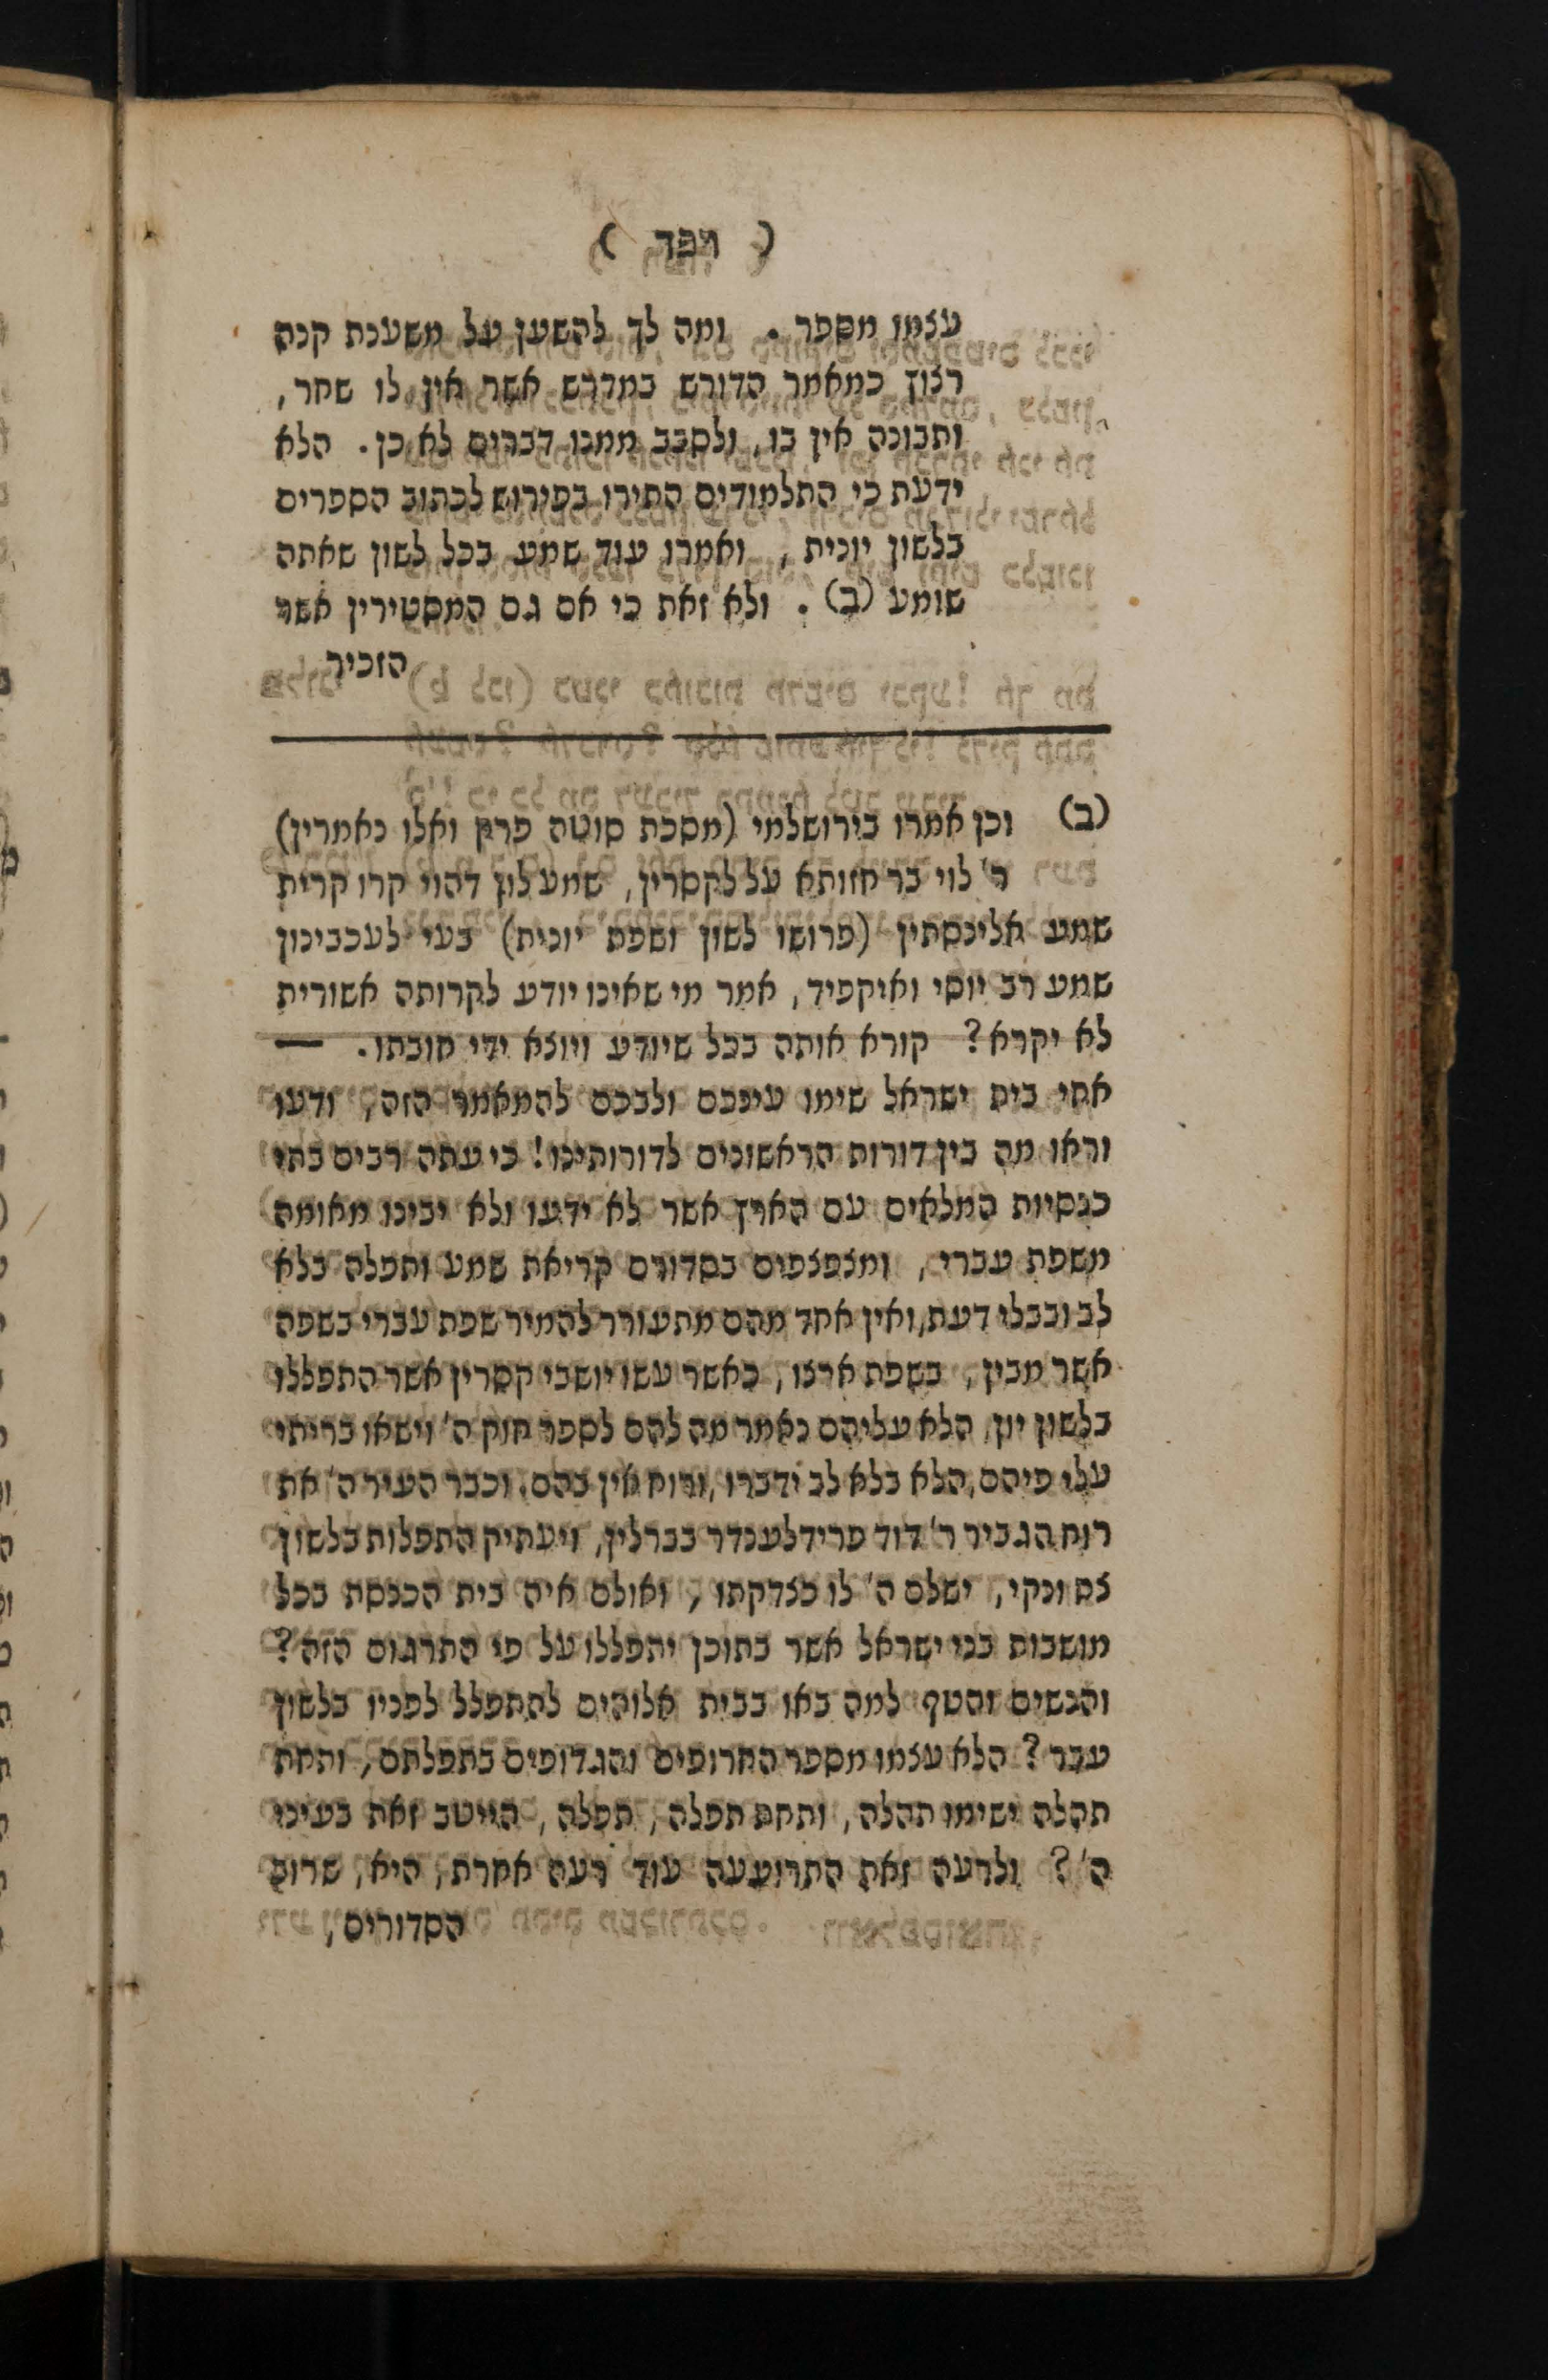 ( רפד )
עצמו מספר . ומה לך להשען על משענת קנה
רצוץ כמאמר הדורש במדרש אשר אין לו שחר,
ותבונה אין בו, ולסבב ממנו דברים לא כן. הלא
ידעת כי התלמודיים התירו בפירוש לכתוב הספרים
בלשון יונית , ואמרו עוד שמע בכל לשון שאתה
שומע (ב) . ולא זאת כי אם גם המסטירין אשר
הזכיר
(ב) וכן אמרו בירושלמי (מסכת סוטה פרק ואלו נאמרין)
ר' לוי בר חזותא על לקסרין, שמע לון דהוי קרו קרית
שמע אלינסתין (פרושו לשון ושפת יונית) בעי לעכבינון
שמע רב יוסי ואיקפיד, אמר מי שאינו יודע לקרותה אשורית
לא יקרא? קורא אותה בכל שיודע ויוצא ידי חובתו. —
אחי בית ישראל שימו עינכם ולבכם להמאמר הזה, ודעו
וראו מה בין דורות הראשונים לדורותינו! כי עתה רבים בתי
כנסיות המלאים עם הארץ אשר לא ידעו ולא יבינו מאומה
משפת עברי, ומצפצפים בסדורם קריאת שמע ותפלה בלא
לב ובבלי דעת, ואין אחד מהם מתעורר להמיר שפת עברי בשפה
אשר מבין, בשפת ארצו, כאשר עשו יושבי קסרין אשר התפללו
בלשון יון, הלא עליהם נאמר מה להם לספר חוק ה' וישאו בריתי
עלי פיהם, הלא בלא לב ידברו, ורוח אין בהם. וכבר העיר ה' את
רוח הגביר ר' דוד פרידלענדר בברלין, ויעתיק התפלות בלשון
צח ונקי, ישלם ה' לו כצדקתו, ואולם איה בית הכנסת בכל
מושבות בני ישראל אשר בתוכן יתפללו על פי התרגום הזה?
והנשים והטף למה באו בבית אלוהים להתפלל לפניו בלשון
עבר? הלא עצמו מספר החרופים והגדופים בתפלתם, ותחת
תהלה ישימו תהלה, ותחת תפלה, תפלה, הייטב זאת בעיני
ה'? ולרעה זאת התרועעה עוד רעה אחרת, היא, שרוב
הסדורים,